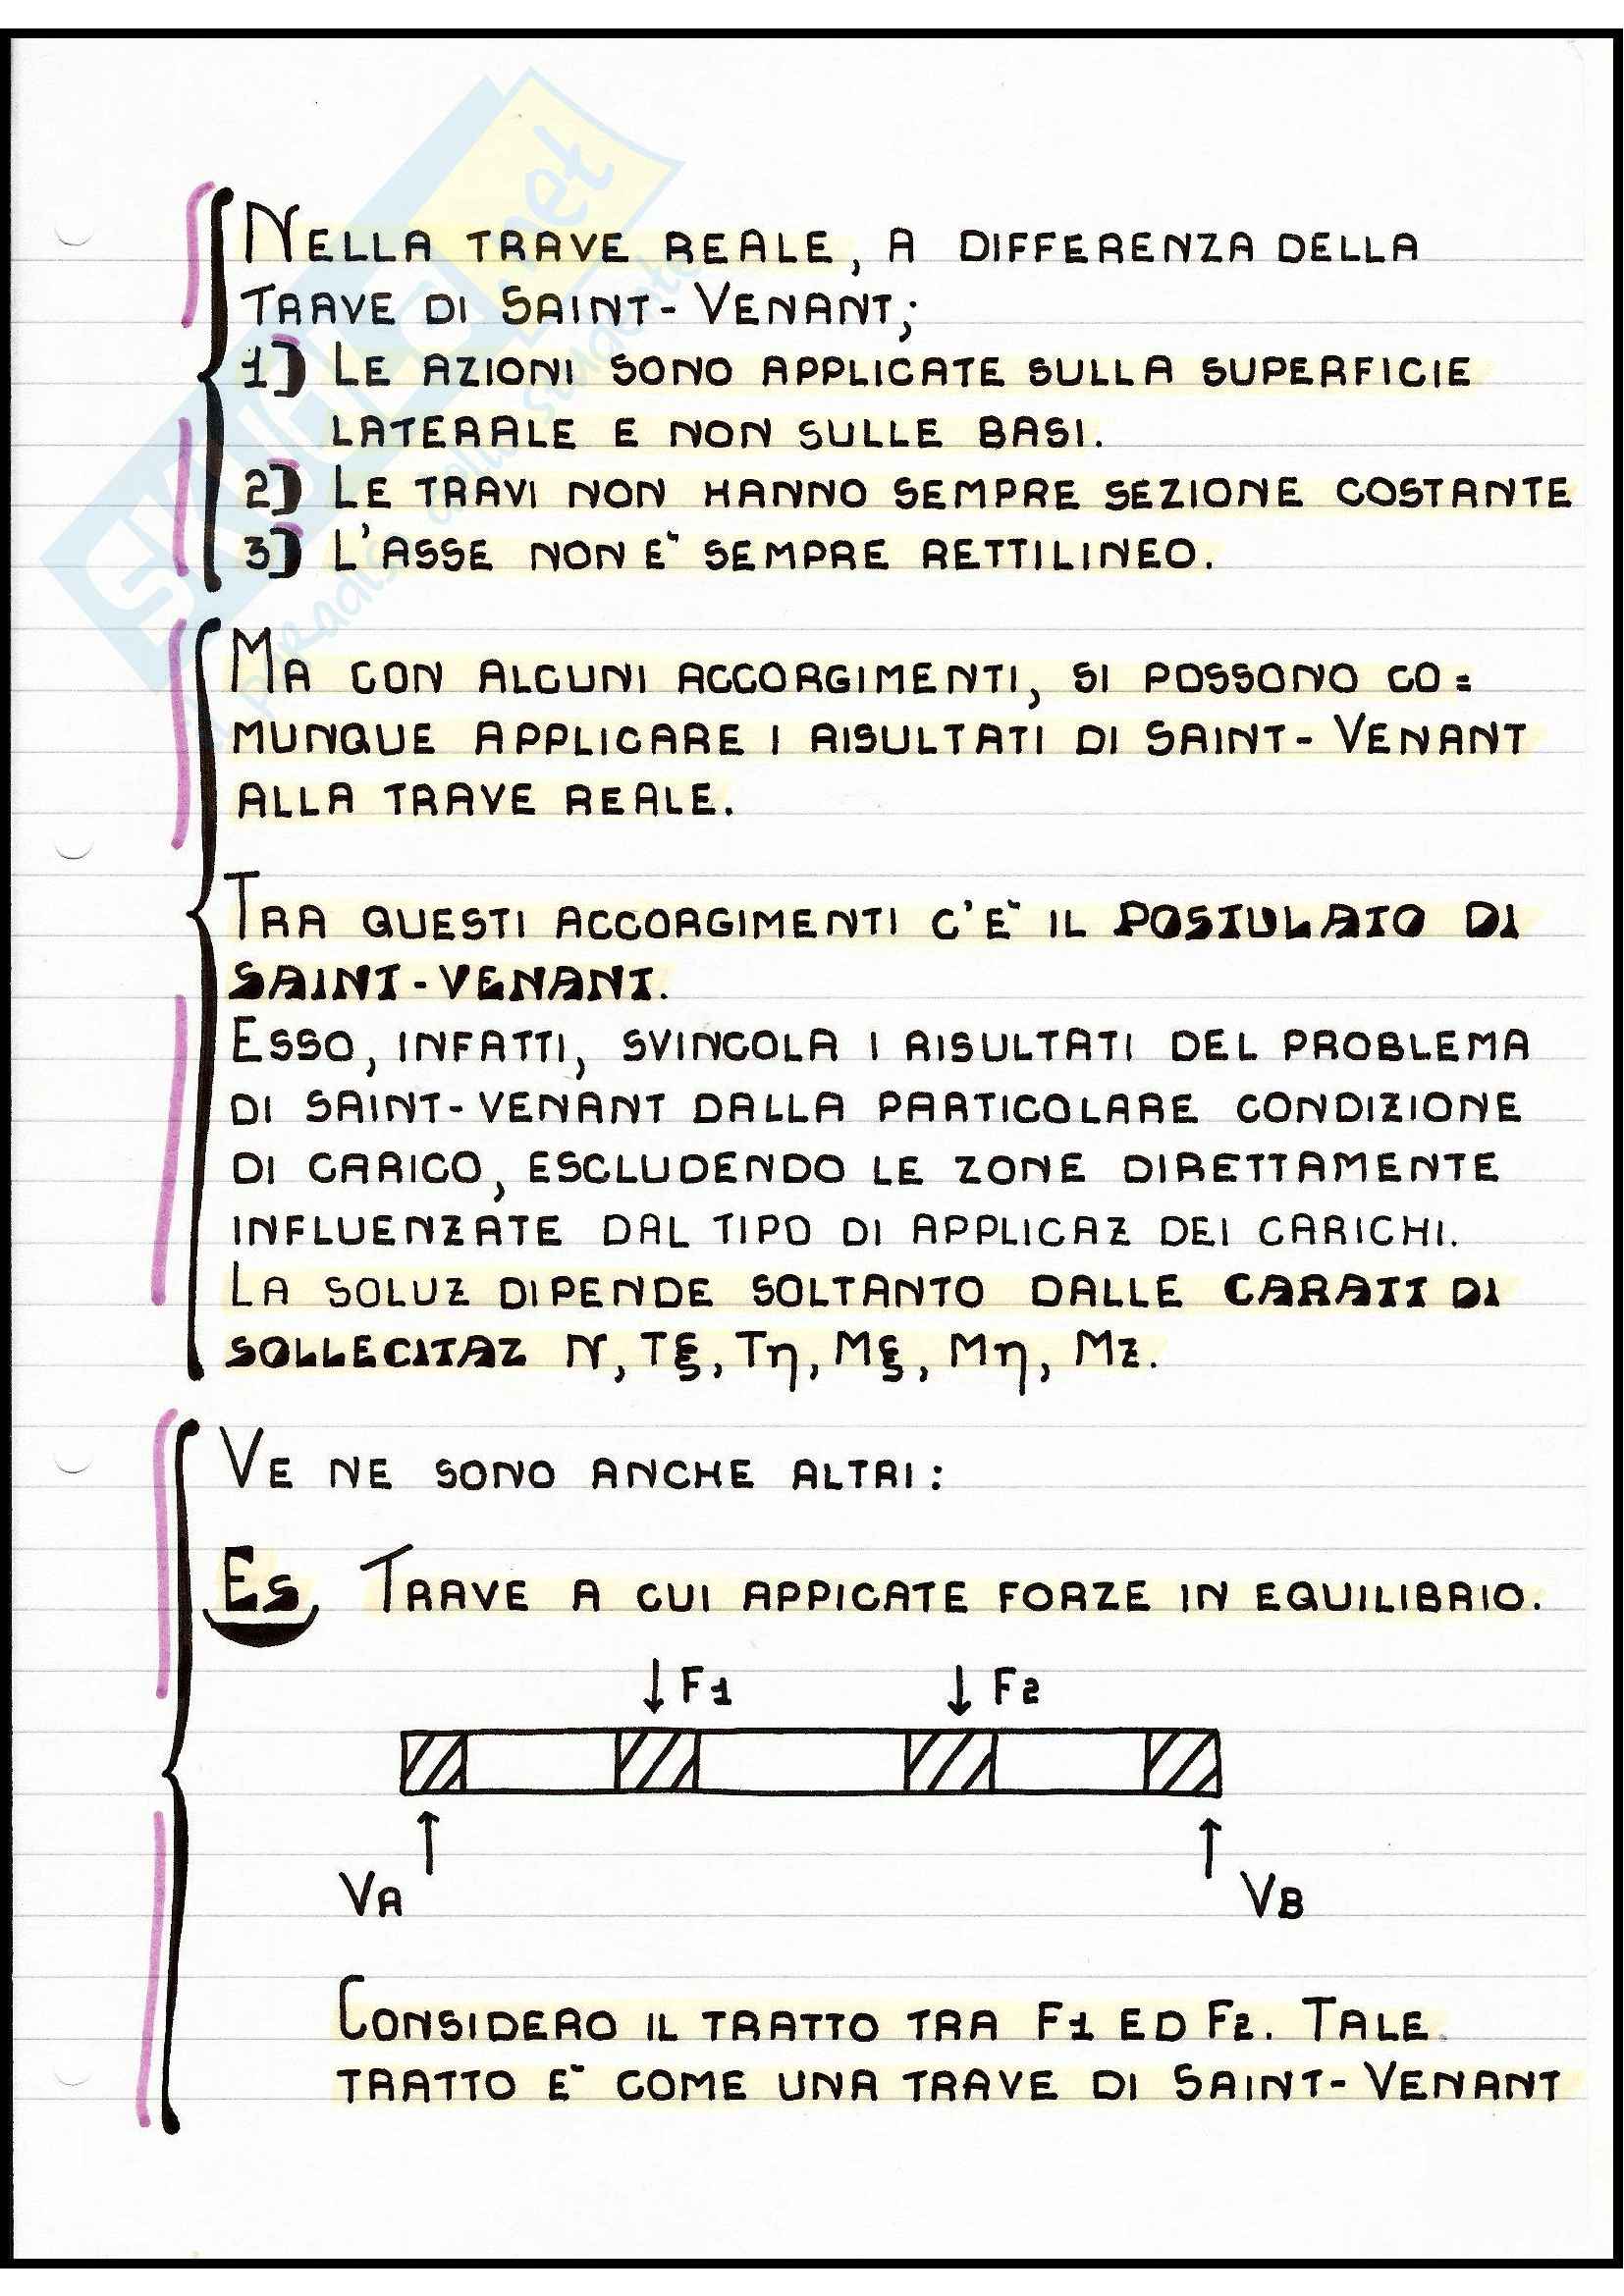 NELLA TRAVE REALE, A DIFFERENZA DELLA
TRAVE DI SAINT-VENANT;
1) LE AZIONI SONO APPLICATE SULLA SUPERFICIE
LATERALE E NON SULLE BASI.
2) LE TRAVI NON HANNO SEMPRE SEZIONE COSTANTE
3) L'ASSE NON È SEMPRE RETTILINEO.
MA CON ALCUNI ACCORGIMENTI, SI POSSONO CO=
MUNQUE APPLICARE I RISULTATI DI SAINT-VENANT
ALLA TRAVE REALE.
TRA QUESTI ACCORGIMENTI C'È IL POSTULATO DI
SAINT-VENANT.
ESSO, INFATTI, SVINCOLA I RISULTATI DEL PROBLEMA
DI SAINT-VENANT DALLA PARTICOLARE CONDIZIONE
DI CARICO, ESCLUDENDO LE ZONE DIRETTAMENTE
INFLUENZATE DAL TIPO DI APPLICAZ DEI CARICHI.
LA SOLUZ DIPENDE SOLTANTO DALLE CARATT DI
SOLLECITAZ N, Tξ, Tη, Mξ, Mη, Mz.
VE NE SONO ANCHE ALTRI:
Es, TRAVE A CUI APPICATE FORZE IN EQUILIBRIO.
↓ F1 ↓ F2
VA ↑ ↑ VB
CONSIDERO IL TRATTO TRA F1 ED F2. TALE
TRATTO È COME UNA TRAVE DI SAINT-VENANT